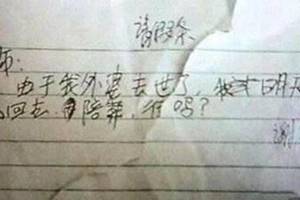 请假条
师:
由于我外婆去世了,我明天
回去陪葬,准吗?
谢